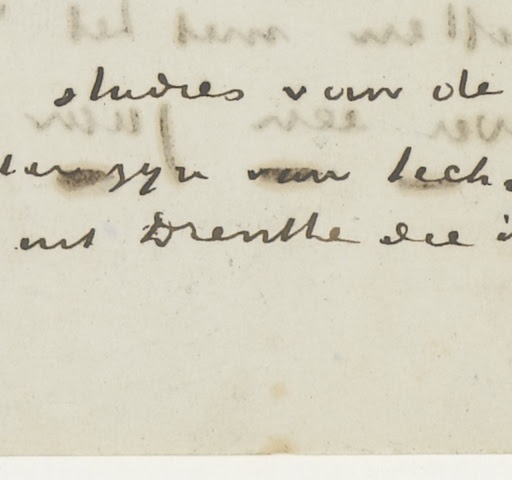 studies van de
ter zyn van tech
uit Drenthe die i